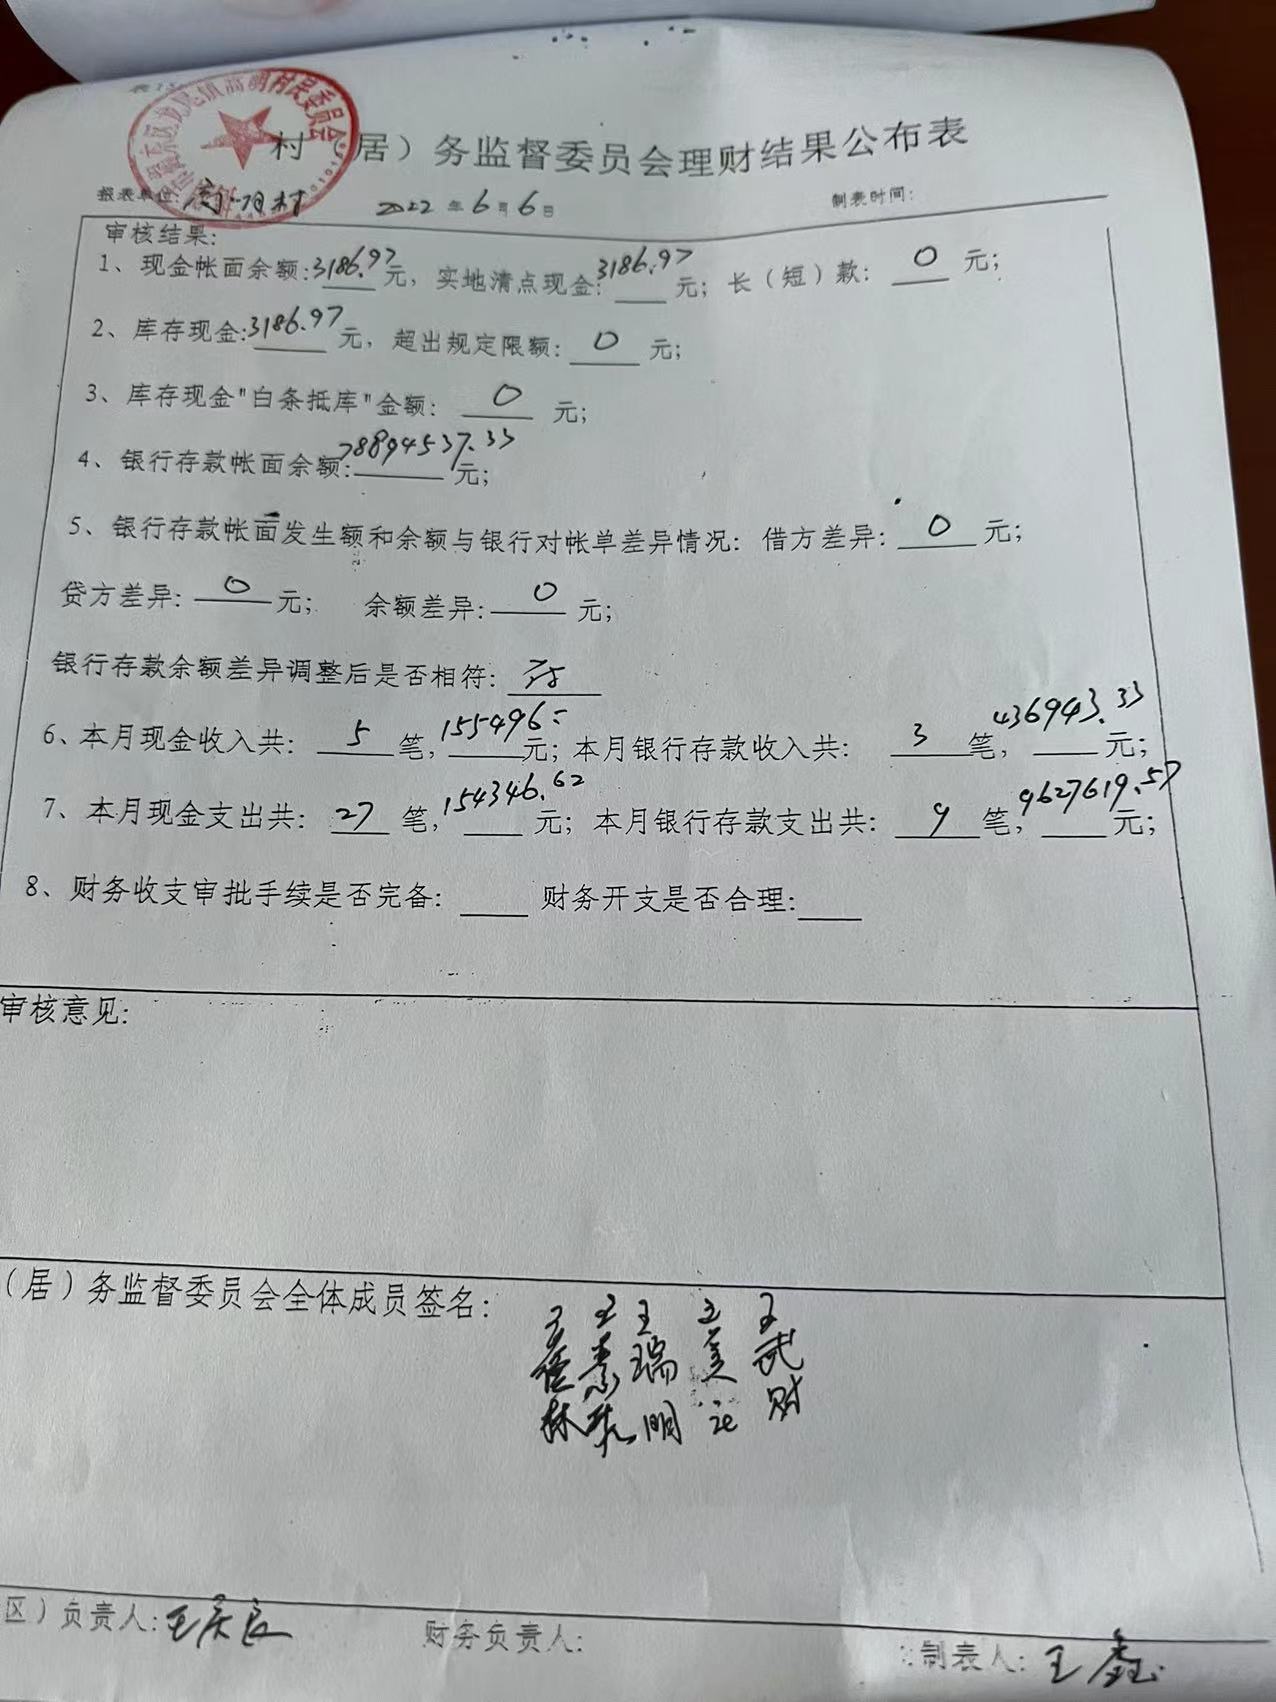 村（居）务监督委员会理财结果公布表
报表单位: 高明村 2022年6月6日 制表时间:
审核结果:
1、现金帐面余额:3186.97元，实地清点现金:3186.97元；长（短）款：0元；
2、库存现金:3186.97元，超出规定限额：0元；
3、库存现金"白条抵库"金额：0元；
4、银行存款帐面余额:78894537.33元；
5、银行存款帐面发生额和余额与银行对帐单差异情况：借方差异：0元；
贷方差异：0元； 余额差异:0元；
银行存款余额差异调整后是否相符：
6、本月现金收入共：5笔，155496元；本月银行存款收入共：3笔，436943.33元；
7、本月现金支出共：27笔，154346.62元；本月银行存款支出共：9笔，9627619.57元；
8、财务收支审批手续是否完备： 财务开支是否合理:
审核意见:
（居）务监督委员会全体成员签名：
王瑞明
王武财
区）负责人: 财务负责人: 制表人: 王鑫